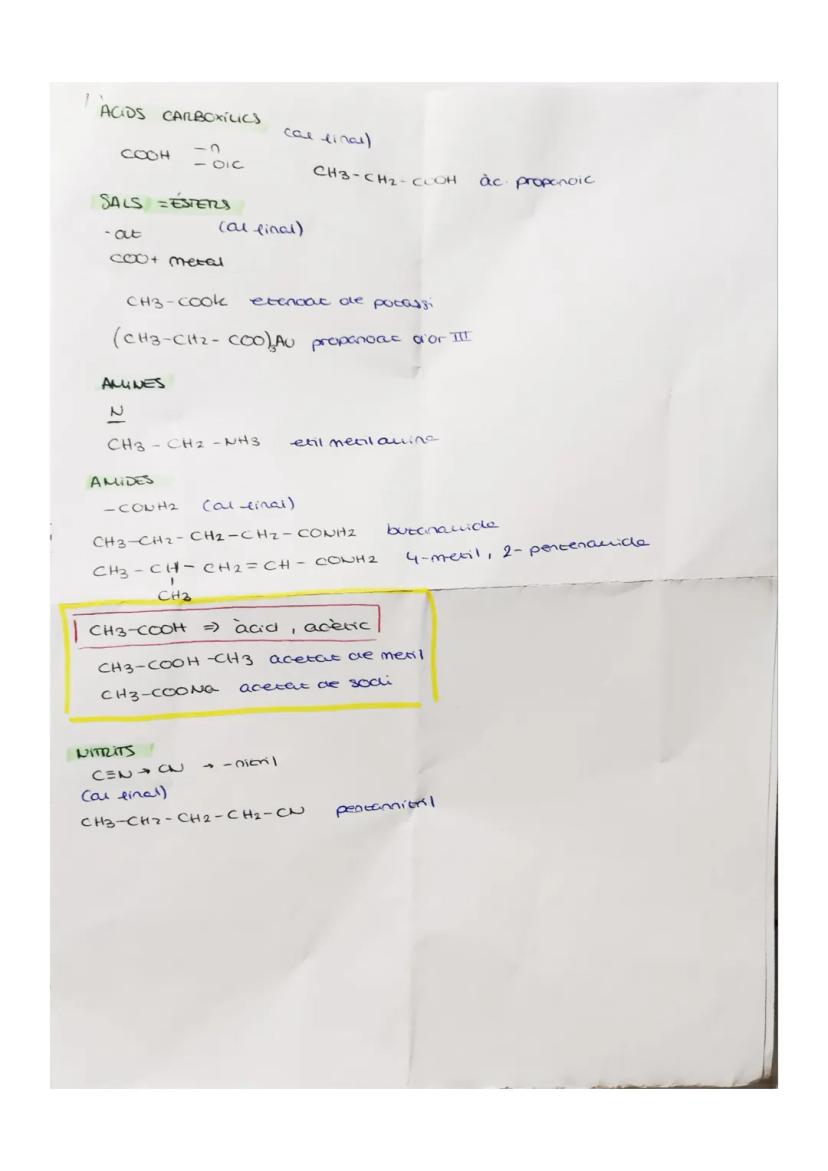 ÀCIDS CARBOXÍLICS
COOH -n -OIC (al final)
CH3-CH2-COOH àc. propanoic
SALS = ÉSTERS
-at (al final)
COO+ metal
CH3-COOK etanoat de potassi
(CH3-CH2-COO)3Au propanoat d'or III
AMINES
N
CH3-CH2-NH3 etil metil amina
AMIDES
-CONH2 (al final)
CH3-CH2-CH2-CH2-CONH2 butanamida
CH3-CH-CH2=CH-CONH2 4-metil, 2-pentenamida
CH3
CH3-COOH ⇒ àcid, acètic
CH3-COOH-CH3 acetat de metil
CH3-COONa acetat de sodi
NITRITS
C≡N → CN → -nitril
(al final)
CH3-CH2-CH2-CH2-CN pentannitril